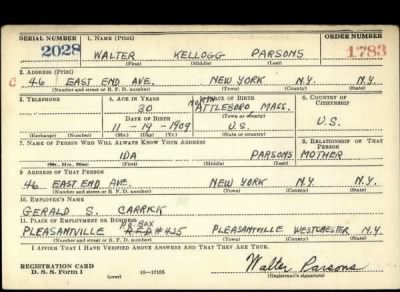 SERIAL NUMBER 1. NAME (Print) ORDER NUMBER
2028 WALTER KELLOGG PARSONS 1783
(First) (Middle) (Last)
2. ADDRESS (Print)
C 46 EAST END AVE. NEW YORK N.Y. N.Y.
(Number and street or R. F. D. number) (Town) (County) (State)
3. TELEPHONE 4. AGE IN YEARS 5. PLACE OF BIRTH 6. COUNTRY OF CITIZENSHIP
30 NORTH ATTLEBORO MASS.
(Town or county)
DATE OF BIRTH
11-19-1909 U.S. U.S.
(Exchange) (Number) (Mo.) (Day) (Yr.) (State or country)
7. NAME OF PERSON WHO WILL ALWAYS KNOW YOUR ADDRESS 8. RELATIONSHIP OF THAT PERSON
IDA PARSONS MOTHER
(Mr., Mrs., Miss) (First) (Middle) (Last)
9. ADDRESS OF THAT PERSON
46 EAST END AVE. NEW YORK N.Y. N.Y.
(Number and street or R. F. D. number) (Town) (County) (State)
10. EMPLOYER'S NAME
GERALD S. CARRICK
11. PLACE OF EMPLOYMENT OR BUSINESS
BOX
PLEASANTVILLE R.F.D #425 PLEASANTVILLE WESTCHESTER N.Y.
(Number and street or R. F. D. number) (Town) (County) (State)
I AFFIRM THAT I HAVE VERIFIED ABOVE ANSWERS AND THAT THEY ARE TRUE.
REGISTRATION CARD
D. S. S. Form 1 (over) 16-17105 Walter Parsons
(Registrant's signature)